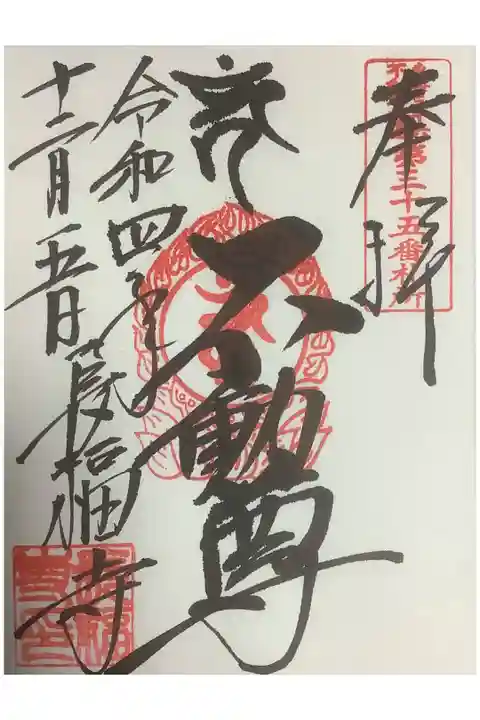 奉拝
第三十五番札所
不動尊
令和四年
十二月二五日
長福寺